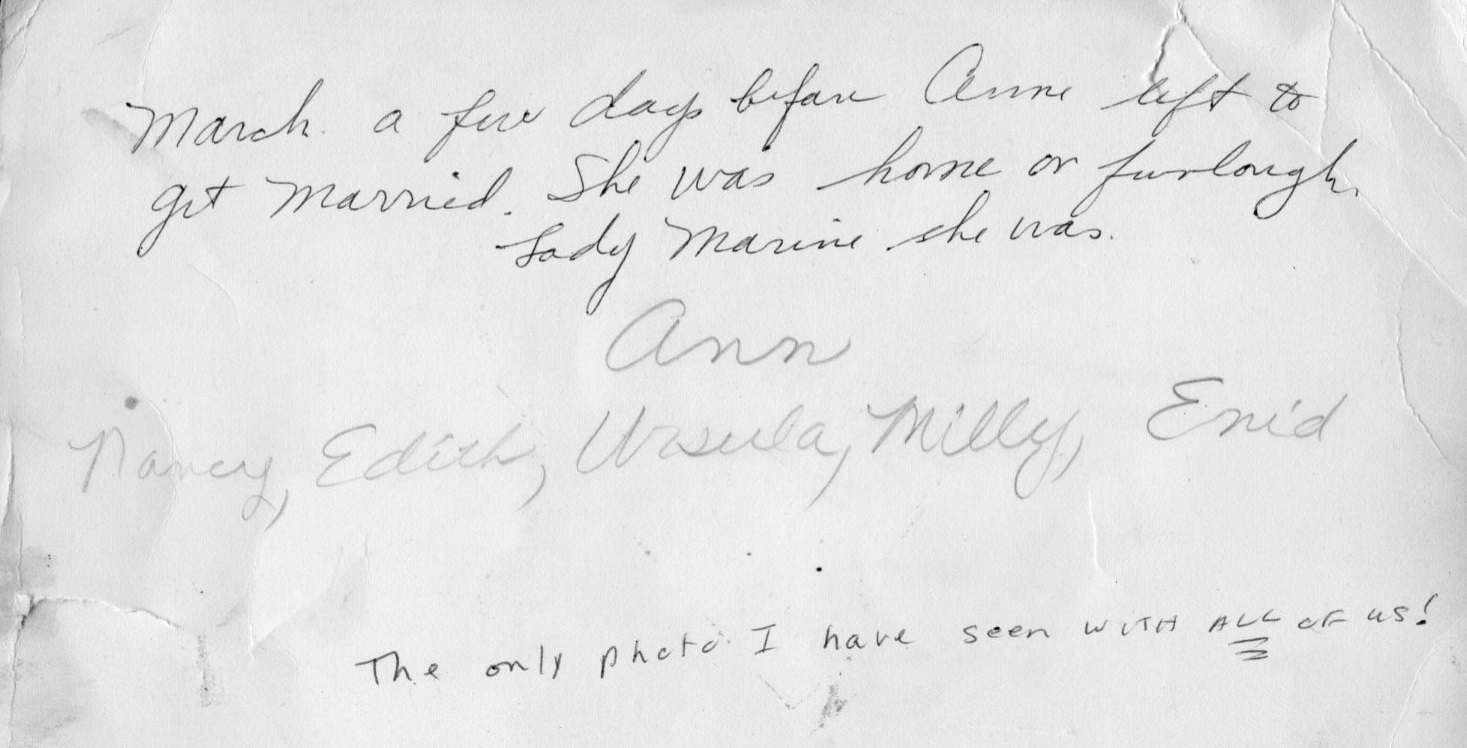 March. a few days before Anne left to
get married. She was home on furlough.
Lady Marine she was.
Ann
Nancy, Edith, Ursula, Milly, Enid
The only photo I have seen WITH ALL OF US!